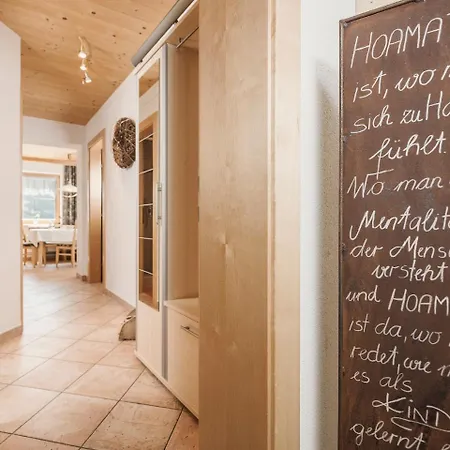 HOAMAT
ist, wo m
sich zu Ha
fühlt.
Wo man
Mentalitä
der Mensc
versteht
und HOAM
ist da, wo
redet, wie m
es als
KIND
gelernt